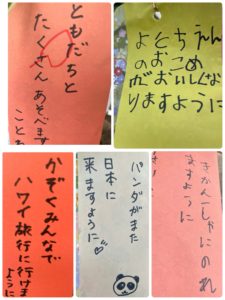 ともだちと
たくさん あそべます
よとちえん
のおこめ
がおいしくな
りますように
かぞくみんなで
ハワイ旅行に行けま
ように
パンダがまた
日本に
来ますように♡
きかんしゃにのれ
ますように